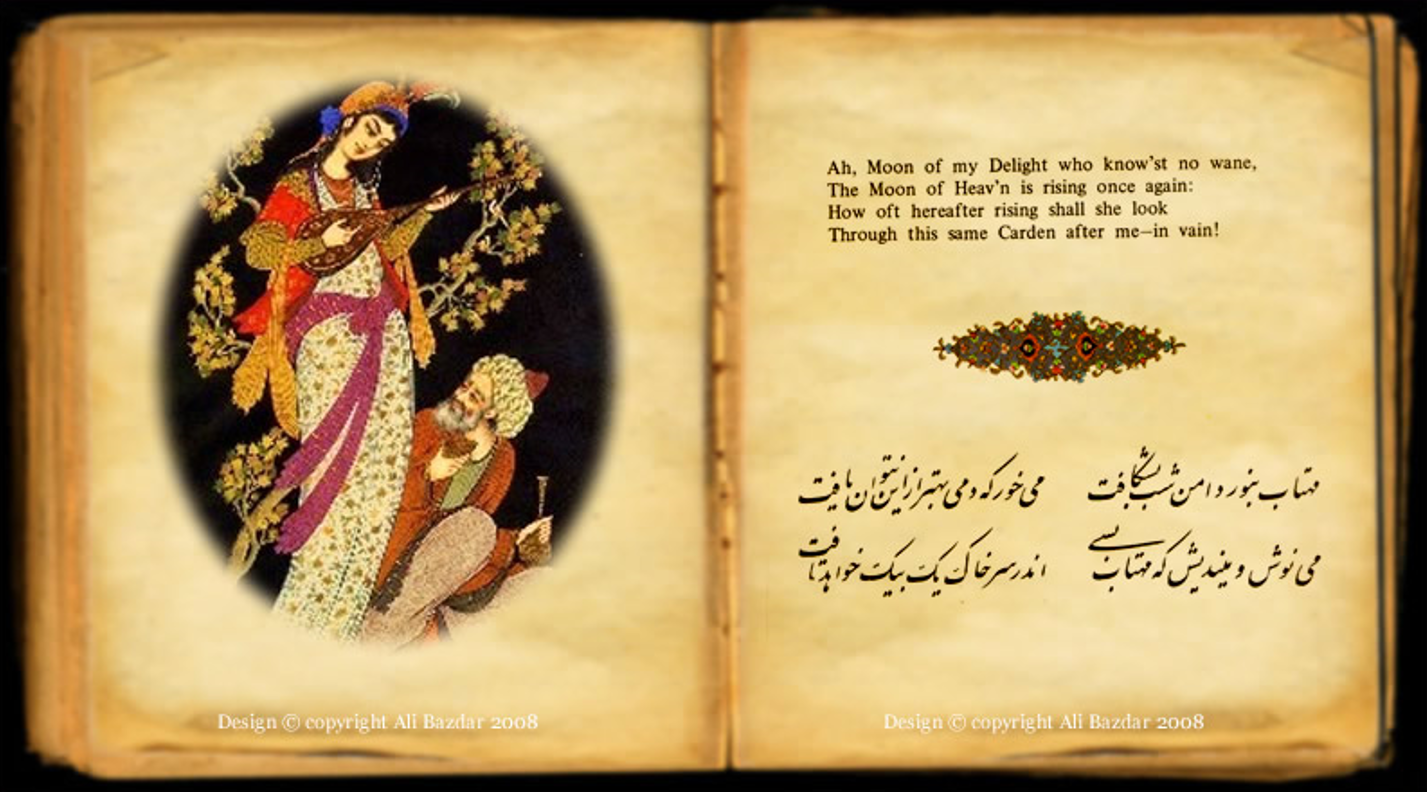 Ah, Moon of my Delight who know'st no wane,
The Moon of Heav'n is rising once again:
How oft hereafter rising shall she look
Through this same Carden after me—in vain!
مهتاب بنور دامن شب بشکافت می خور که دمی بهتر از این نتوان یافت
می نوش و میندیش که مهتاب بسے اندر سر خاک یک بیک خواهد تافت
Design © copyright Ali Bazdar 2008
Design © copyright Ali Bazdar 2008